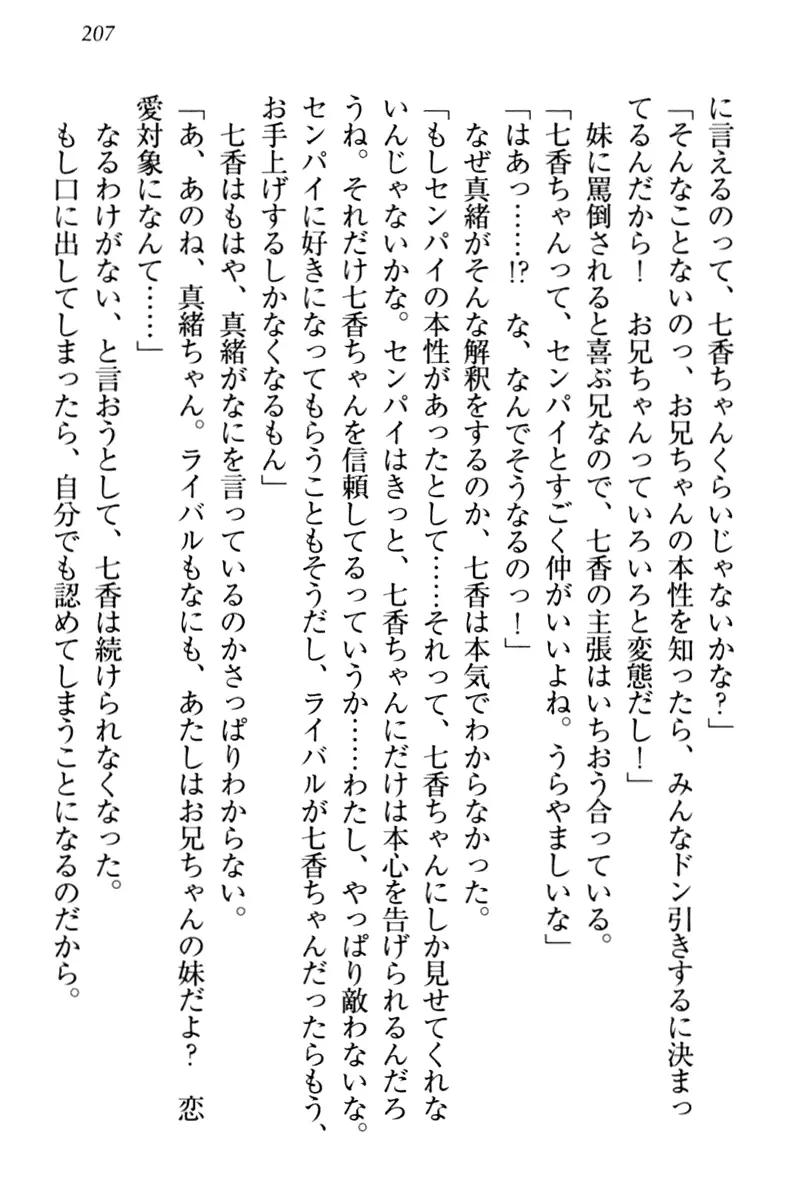 207
に言えるのって、七香ちゃんくらいじゃないかな?」
「そんなことないのっ、お兄ちゃんの本性を知ったら、みんなドン引きするに決まっ
てるんだから! お兄ちゃんっていろいろと変態だし!」
妹に罵倒されると喜ぶ兄なので、七香の主張はいちおう合っている。
「七香ちゃんって、センパイとすごく仲がいいよね。うらやましいな」
「はあっ……!? な、なんでそうなるのっ!」
なぜ真緒がそんな解釈をするのか、七香は本気でわからなかった。
「もしセンパイの本性があったとして……それって、七香ちゃんにしか見せてくれな
いんじゃないかな。センパイはきっと、七香ちゃんにだけは本心を告げられるんだろ
うね。それだけ七香ちゃんを信頼してるっていうか……わたし、やっぱり敵わないな。
センパイに好きになってもらうこともそうだし、ライバルが七香ちゃんだったらもう、
お手上げするしかなくなるもん」
七香はもはや、真緒がなにを言っているのかさっぱりわからない。
「あ、あのね、真緒ちゃん。ライバルもなにも、あたしはお兄ちゃんの妹だよ? 恋
愛対象になんて……」
なるわけがない、と言おうとして、七香は続けられなくなった。
もし口に出してしまったら、自分でも認めてしまうことになるのだから。